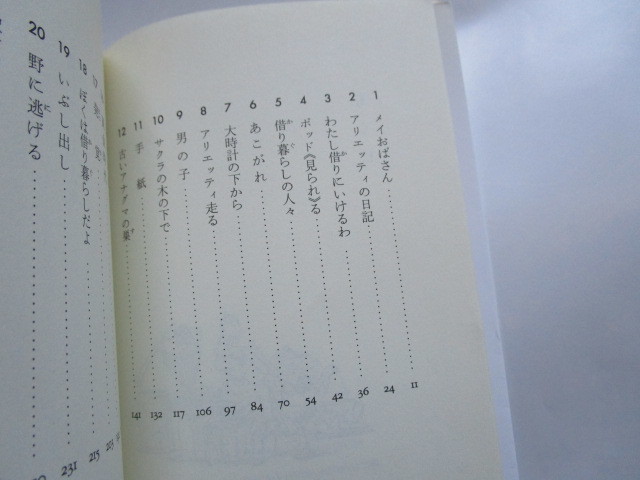 1 メイおばさん 11
2 アリエッティの日記 24
3 わたし借りにいけるわ 36
4 ポッド《見られ》る 42
5 借り暮らしの人々 54
6 あこがれ 70
7 大時計の下から 84
8 アリエッティ走る 97
9 男の子 106
10 サクラの木の下で 117
11 手紙 132
12 古いアナグマの巣 141
18 ぼくは借り暮らしだよ 215
19 いぶし出し 231
20 野に逃げる